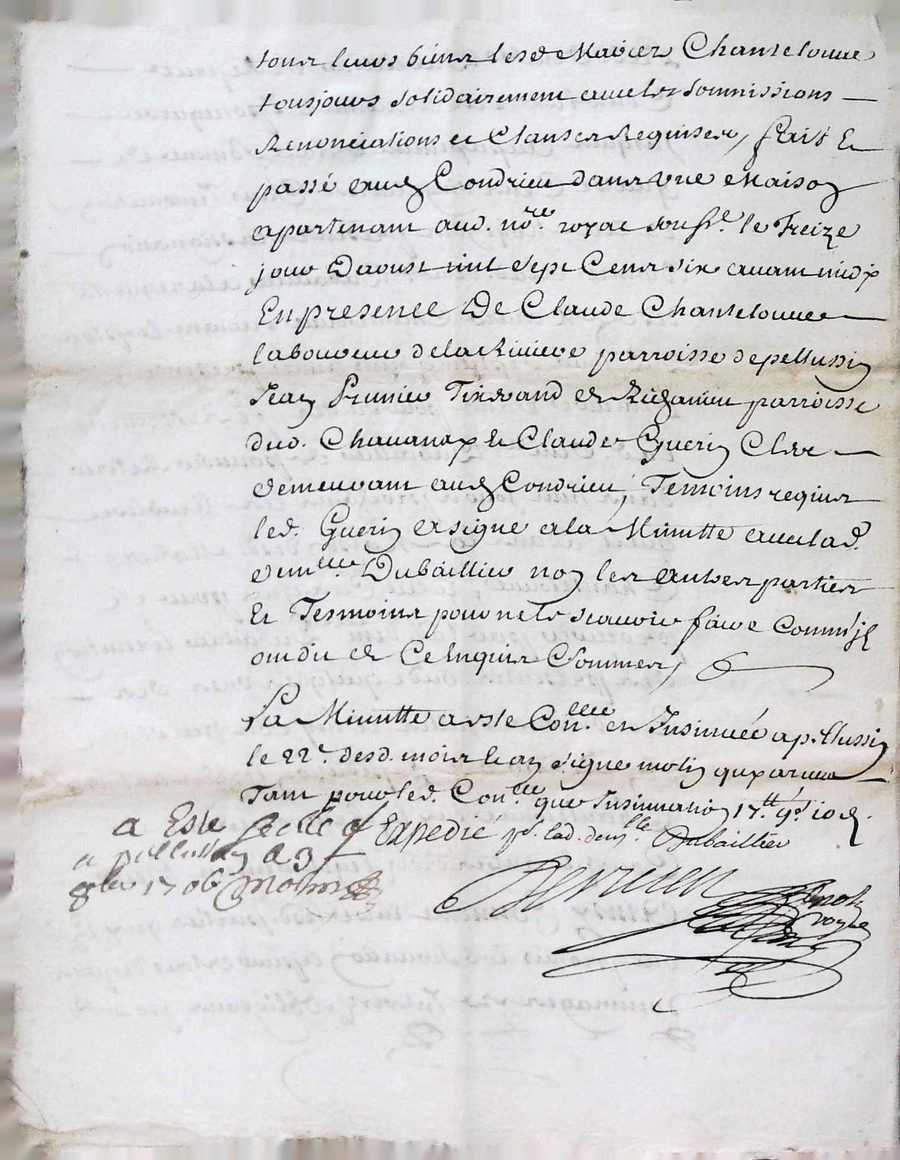 tous leurs biens lesd Mariez Chantelouve
tousjours solidairement avec les soumissions
Renonciations et Clauses Requises, fait et
passé aud Condrieu dans une Maison
apartenant aud. nore. royal soussé. le Treize
jour Daoust mil sept Cens six avant midy
En presence De Claude Chantelouve
laboureur de la Riviere parroisse de pellussin
Jean Prunier Tisserand de parroisse
dud. Chavanay et Claude Guerin Clerc
demeurant aud Condrieu, Temoins requis
led. Guerin a signe a la Minutte avec lad.
demlle. Dubaillier non les autres parties
Et Tesmoins pour ne le scavoir faire Comme ils
ont dit de Ce Enquis et Sommes,
La Minutte a este Conllee. et Insinuée a pellussin
le 22e. desd. mois et an signe molin qui a receu
Tant pour led. Conlle que Insinuation 17tt 9s 10d.
a Este scellé Expedié pr. lad. demlle Dubaillier
a pellussin a 3
8bre 1706 molin